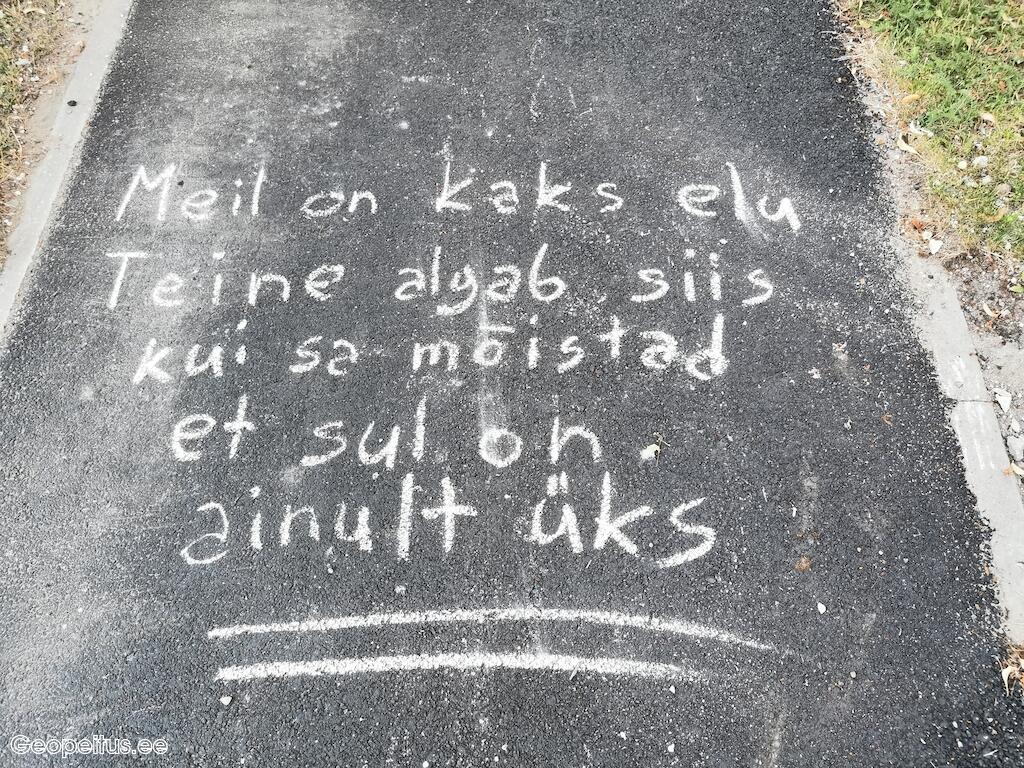 Meil on kaks elu
Teine algab siis
kui sa mõistad
et sul on
ainult üks
Geopeitus.ee